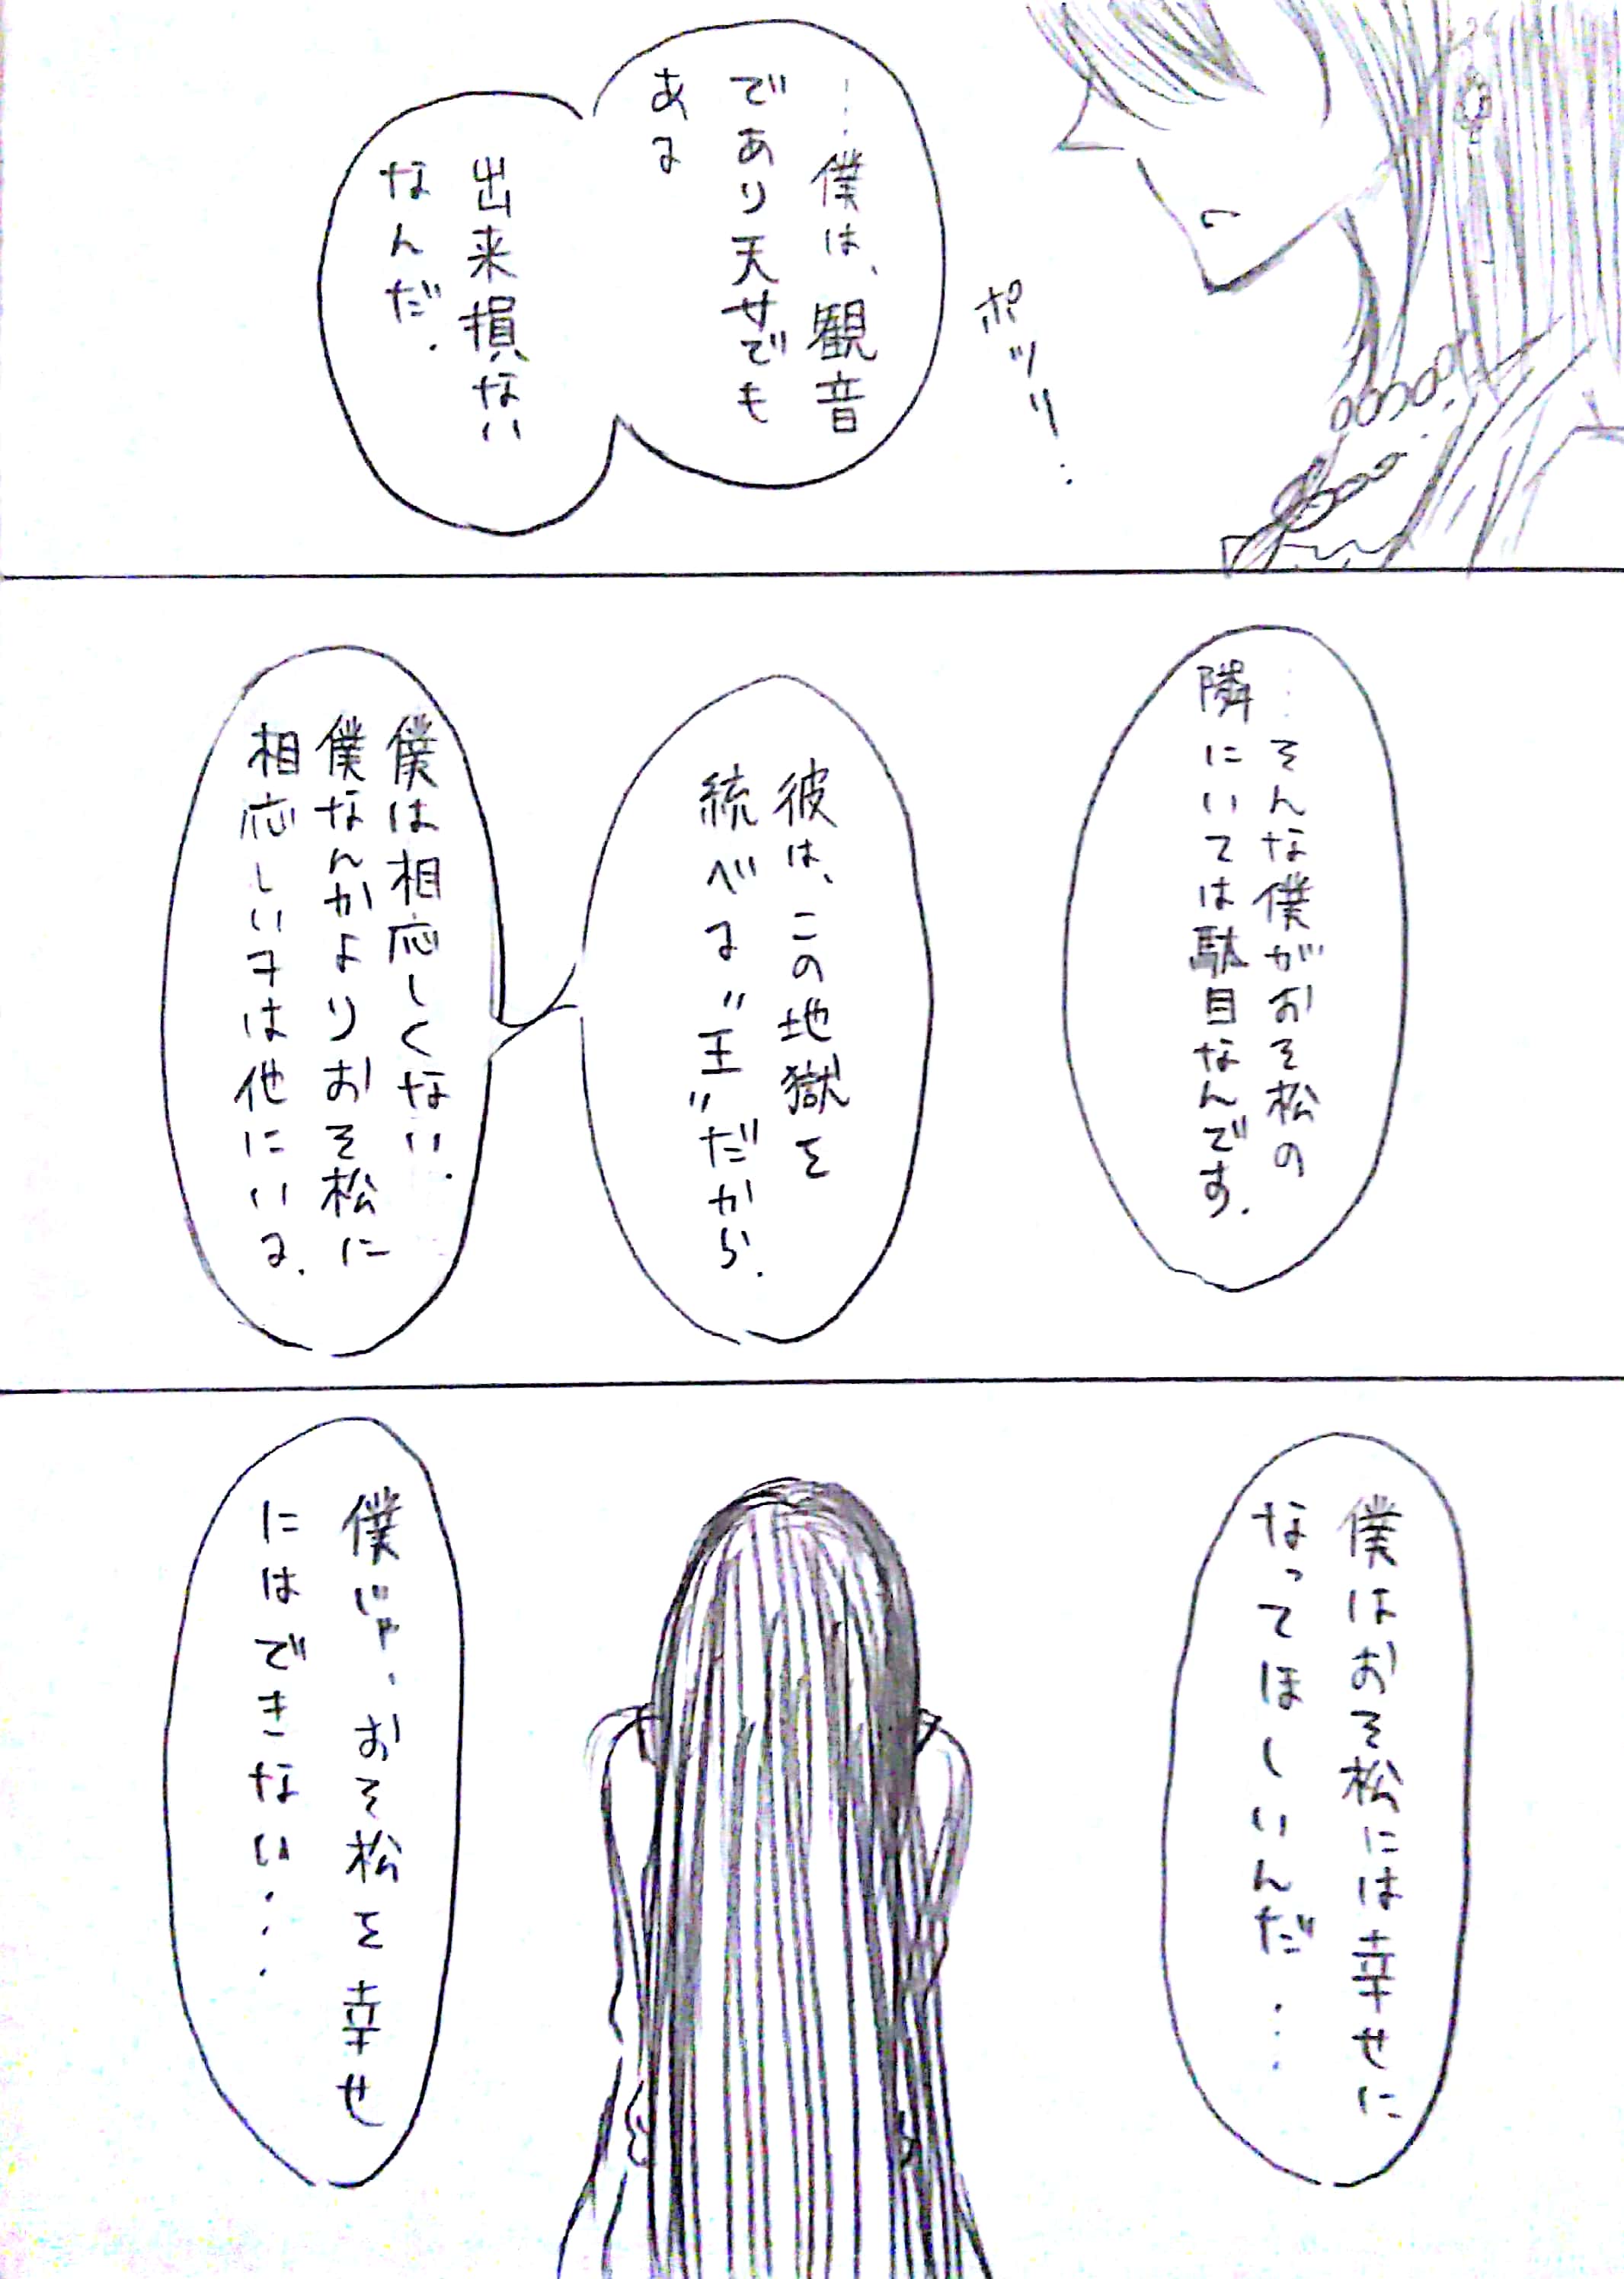 …僕は、観音
であり天女でも
ある
出来損ない
なんだ.
ポツリ.
…そんな僕がおそ松の
隣にいては駄目なんです.
彼は、この地獄を
統べる"王"だから.
僕は相応しくない.
僕なんかよりおそ松に
相応しい子は他にいる.
僕はおそ松には幸せに
なってほしいんだ…
僕じゃ、おそ松を幸せ
にはできない…